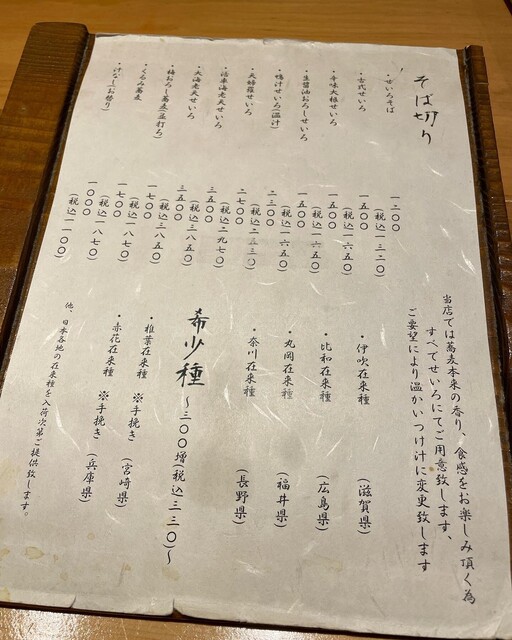 そば切り
・せいろそば
一二〇〇
(税込一三二〇)
・古式せいろ
一五〇〇
(税込一六五〇)
・辛味大根せいろ
一五〇〇
(税込一六五〇)
・生醤油おろしせいろ
一五〇〇
(税込一六五〇)
・鴨汁せいろ(温汁)
二三〇〇
(税込二五三〇)
・天婦羅せいろ
二七〇〇
(税込二九七〇)
・活車海老天せいろ
三五〇〇
(税込三八五〇)
・大海老天せいろ
三五〇〇
(税込三八五〇)
・梅おろし蕎麦(並打ち)
一七〇〇
(税込一八七〇)
・くるみ蕎麦
一七〇〇
(税込一八七〇)
・汁なし(お替り)
一〇〇〇
(税込一一〇〇)
当店では蕎麦本来の香り、食感をお楽しみ頂く為
すべてせいろにてご用意致します、
ご要望により温かいつけ汁に変更致します
・伊吹在来種 (滋賀県)
・比和在来種 (広島県)
・丸岡在来種 (福井県)
・奈川在来種 (長野県)
希少種 ～三〇〇増(税込三三〇)～
・椎葉在来種 ※手挽き (宮崎県)
・赤花在来種 ※手挽き (兵庫県)
他、日本各地の在来種を入荷次第ご提供致します。